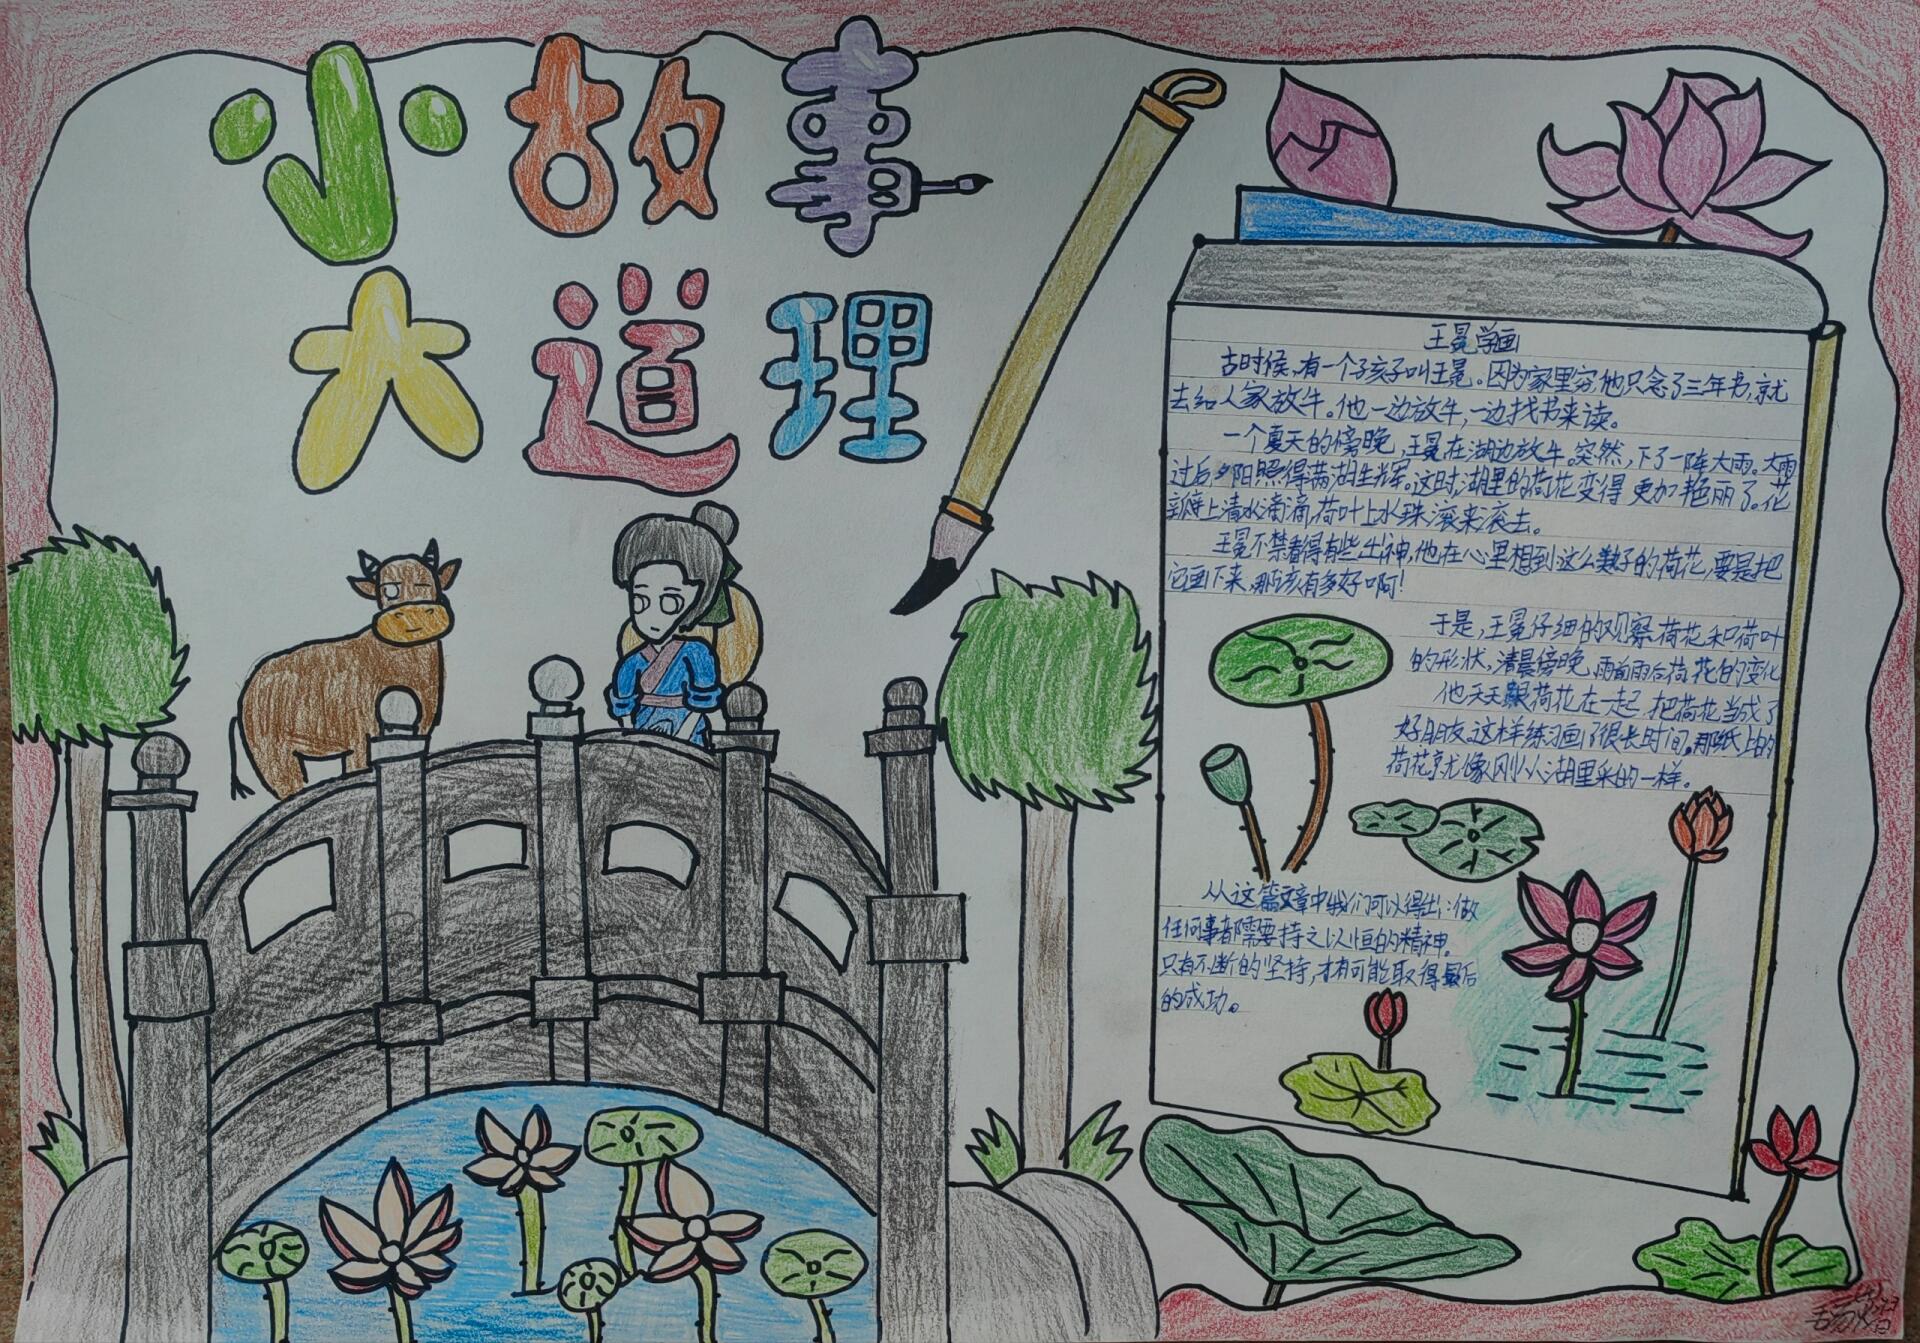 小故事
大道理
王冕学画
古时候,有一个小孩子叫王冕。因为家里穷,他只念了三年书,就
去给人家放牛。他一边放牛,一边找书来读。
一个夏天的傍晚,王冕在湖边放牛。突然,下了一阵大雨。大雨
过后夕阳照得满湖生辉。这时湖里的荷花变得更加艳丽了。花
瓣上清水滴滴,荷叶上水珠滚来滚去。
王冕不禁看得有些出神,他在心里想到这么美好的荷花,要是把
它画下来,那该有多好啊!
于是,王冕仔细的观察荷花和荷叶
的形状,清晨傍晚,雨前雨后荷花的变化
他天天跟荷花在一起,把荷花当成了
好朋友。这样练习画了很长时间。那纸上的
荷花就像刚从湖里采的一样。
从这篇文章中我们可以得出:做
任何事都需要持之以恒的精神。
只有不断的坚持,才有可能取得最后
的成功。